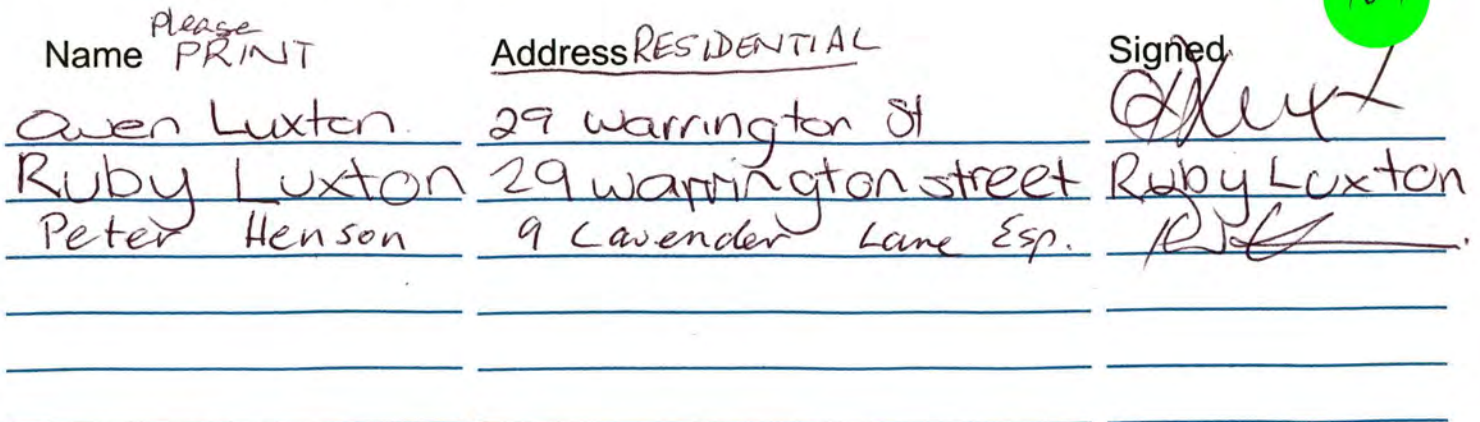 Name please PRINT Address RESIDENTIAL Signed
Owen Luxton. 29 warrington St
Ruby Luxton 29 warrington street Ruby Luxton
Peter Henson 9 Lavender Lane Esp.